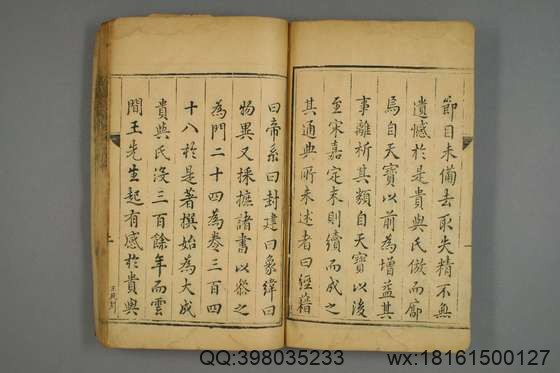 節目未備去取失精不無
遺憾於是貴與氏倣而廓
焉自天寶以前為增益其
事離析其類自天寶以後
至宋嘉定末則續而成之
其通典所未述者曰經籍
曰帝系曰封建曰象緯曰
物異又採摭諸書以發之
為門二十四為卷三百四
十八於是著撰始為大成
貴與氏沒三百餘年而雲
間王先生起有感於貴與
QQ:398035233
wx:18161500127